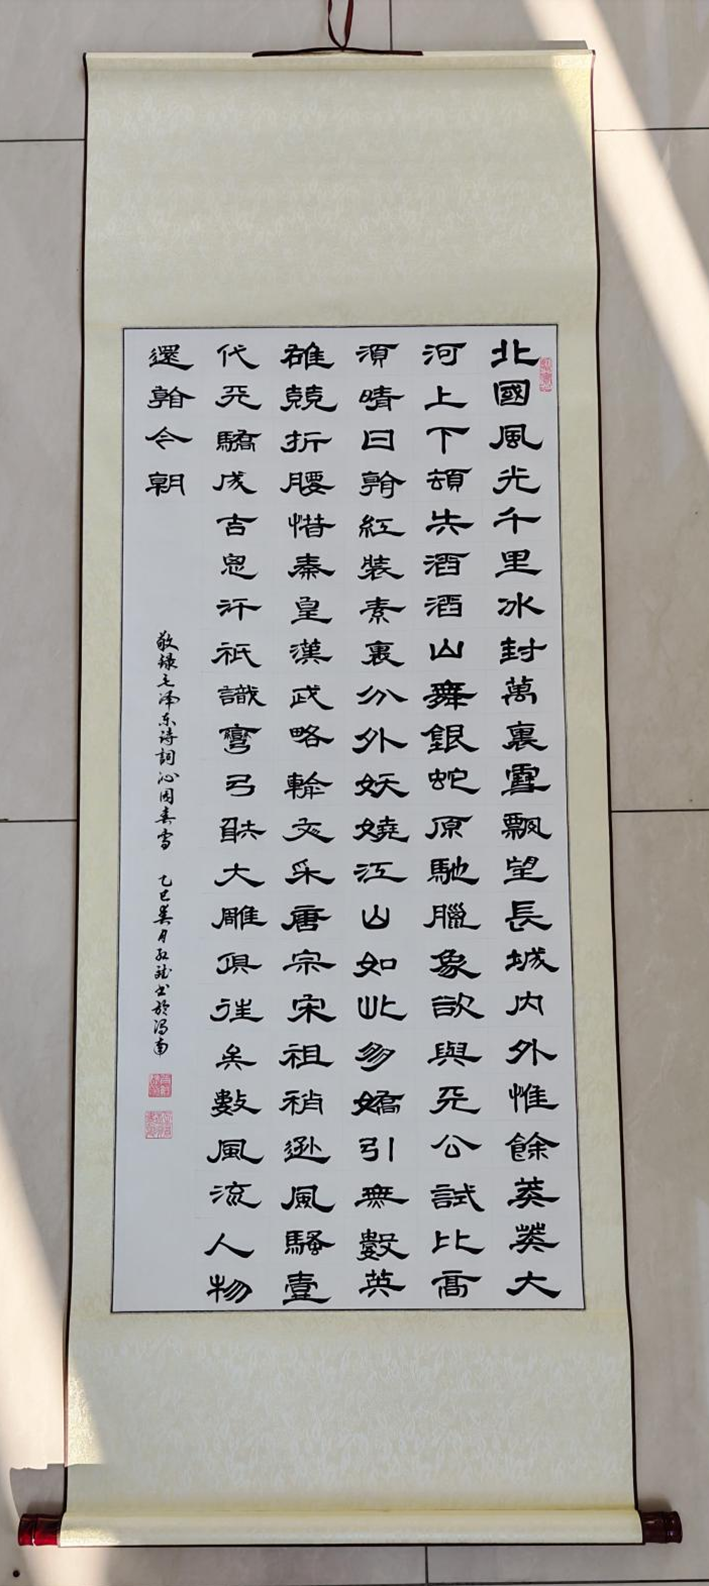 北國風光千里冰封萬裏雪飄望長城内外惟餘莽莽大
河上下頓失滔滔山舞銀蛇原馳臘象欲與天公試比高
須晴日看紅裝素裹分外妖嬈江山如此多嬌引無數英
雄競折腰惜秦皇漢武略輸文采唐宗宋祖稍遜風騷壹
代天驕成吉思汗祇識彎弓射大雕俱往矣數風流人物
還看今朝
敬録毛泽东诗詞沁园春雪 乙巳葵月书於南